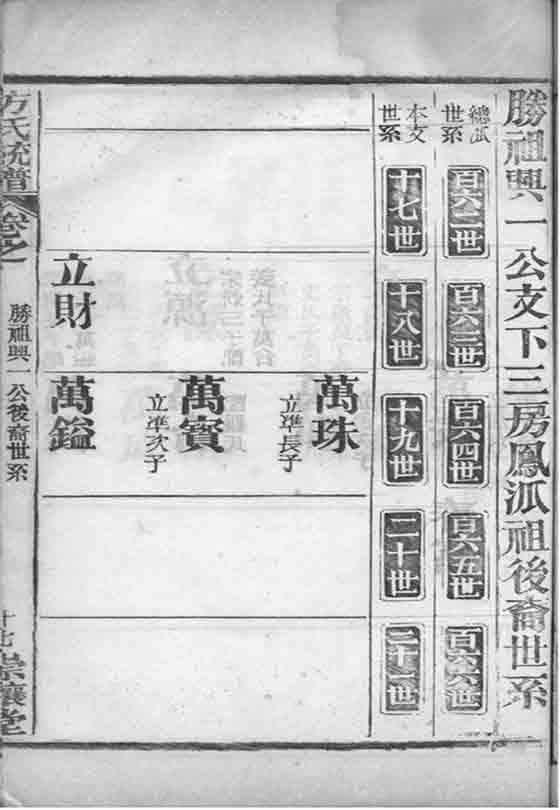 勝祖興一公支下三房鳳派祖後裔世系
總派世系
百六二世
百六三世
百六四世
百六五世
百六六世
本支世系
十七世
十八世
十九世
二十世
二十一世
萬珠
立準長子
萬寶
立準次子
立財
萬鎰
方氏統譜
卷之一
勝祖興一公後裔世系
十七
崇讓堂